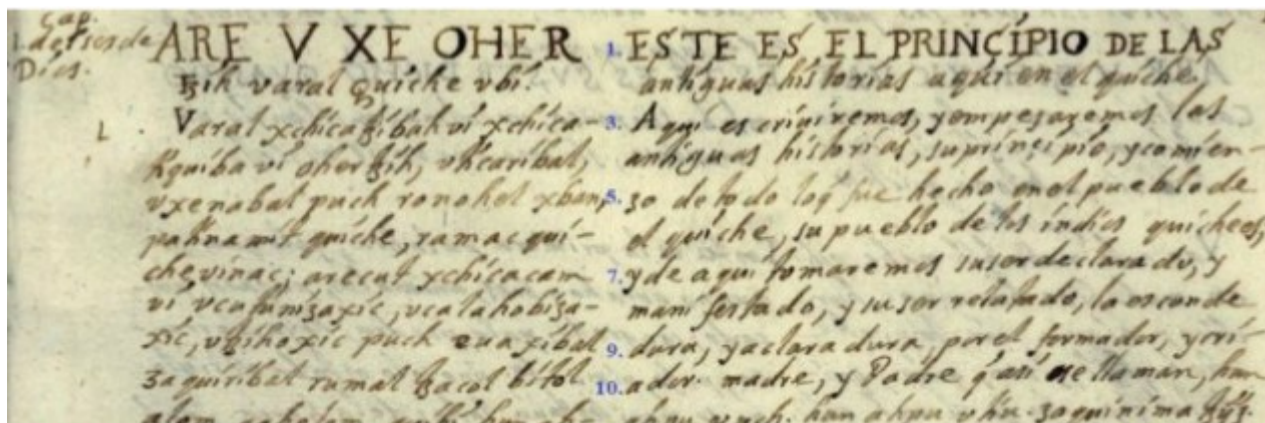 Cap.
1. del ser de
Dios.
ARE V XE OHER
tzih varal quiche vbi.
Varal xchicatzibah vi xchica-
tiquiba vi oher tzih, vticaribal,
vxenabal puch ronohel xban
pa tinamit quiche, ramac qui-
che vinac; arecut xchicacam
vi vcutunizaxic, vcalahobiza-
xic, vtzihoxic puch euaxibal
zaquiribal rumal tzacol bitol
1. ESTE ES EL PRINCIPIO DE LAS
antiguas historias aqui en el quiche.
3. Aqui escriviremos, y empezaremos las
antiguas historias, su principio, y comien-
5. zo de todo lo q fue hecho en el pueblo de
el quiche, su pueblo de los indios quichees,
7. y de aqui tomaremos su ser declarado, y
manifestado, y su ser relatado, la esconde
9. dura, y aclaradura, por el formador, y cri-
10. ador. madre, y Padre q asi se llaman, hun